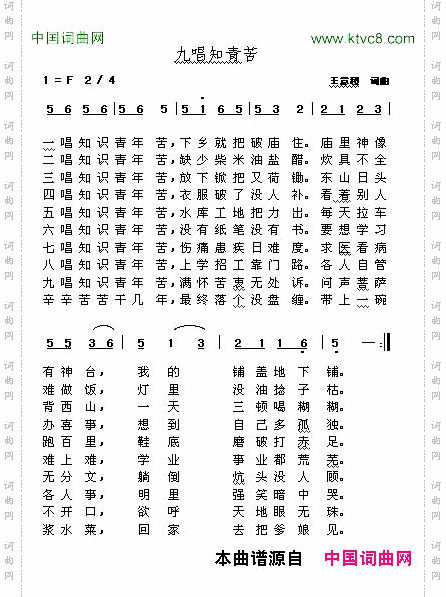 中国词曲网 www.ktvc8.com
九唱知青苦
1=F 2/4 王意稳 词曲
5 6 5 6 | 5 6 5 | 5 1 6 5 | 5 3 2 | 2 1 2 3 |
一唱知识青年 苦,下乡就把破庙 住。庙里神像
二唱知识青年 苦,缺少柴米油盐 醋。炊具不全
三唱知识青年 苦,放下锨把又荷 锄。东山日头
四唱知识青年 苦,衣服破了没人 补。看着别人
五唱知识青年 苦,水库工地把力 出。每天拉车
六唱知识青年 苦,没有纸笔没有 书。要想学习
七唱知识青年 苦,伤痛患疾日难 度。求医看病
八唱知识青年 苦,上学招工靠门 路。各人自管
九唱知识青年 苦,满怀苦衷无处 诉。问声菩萨
辛辛苦苦千几 年,最终落个没盘 缠。带上一碗
5 5 3 6 | 5 1 3 | 2 1 1 6 | 5 — :‖
有神台, 我的 铺盖地下 铺。
难做饭, 灯里 没油捻子 枯。
背西山, 一天 三顿喝糊 糊。
办喜事, 想到 自己多孤 独。
跑百里, 鞋底 磨破打赤 足。
难上难, 学业 事业都荒 芜。
无分文, 躺倒 炕头没人 顾。
各人事, 明里 强笑暗中 哭。
不开口, 欲呼 天地眼无 珠。
浆水菜, 回家 去把爹娘 见。
本曲谱源自 中国词曲网
词曲网
词曲网